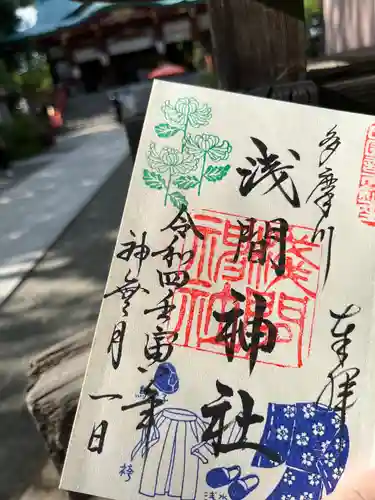 多摩川
奉拝
浅間神社
浅間神社
令和四壬寅年
神無月一日
袴
浅